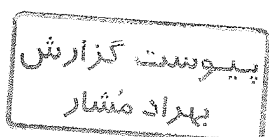 پیوست گزارش
بهراد مُشار